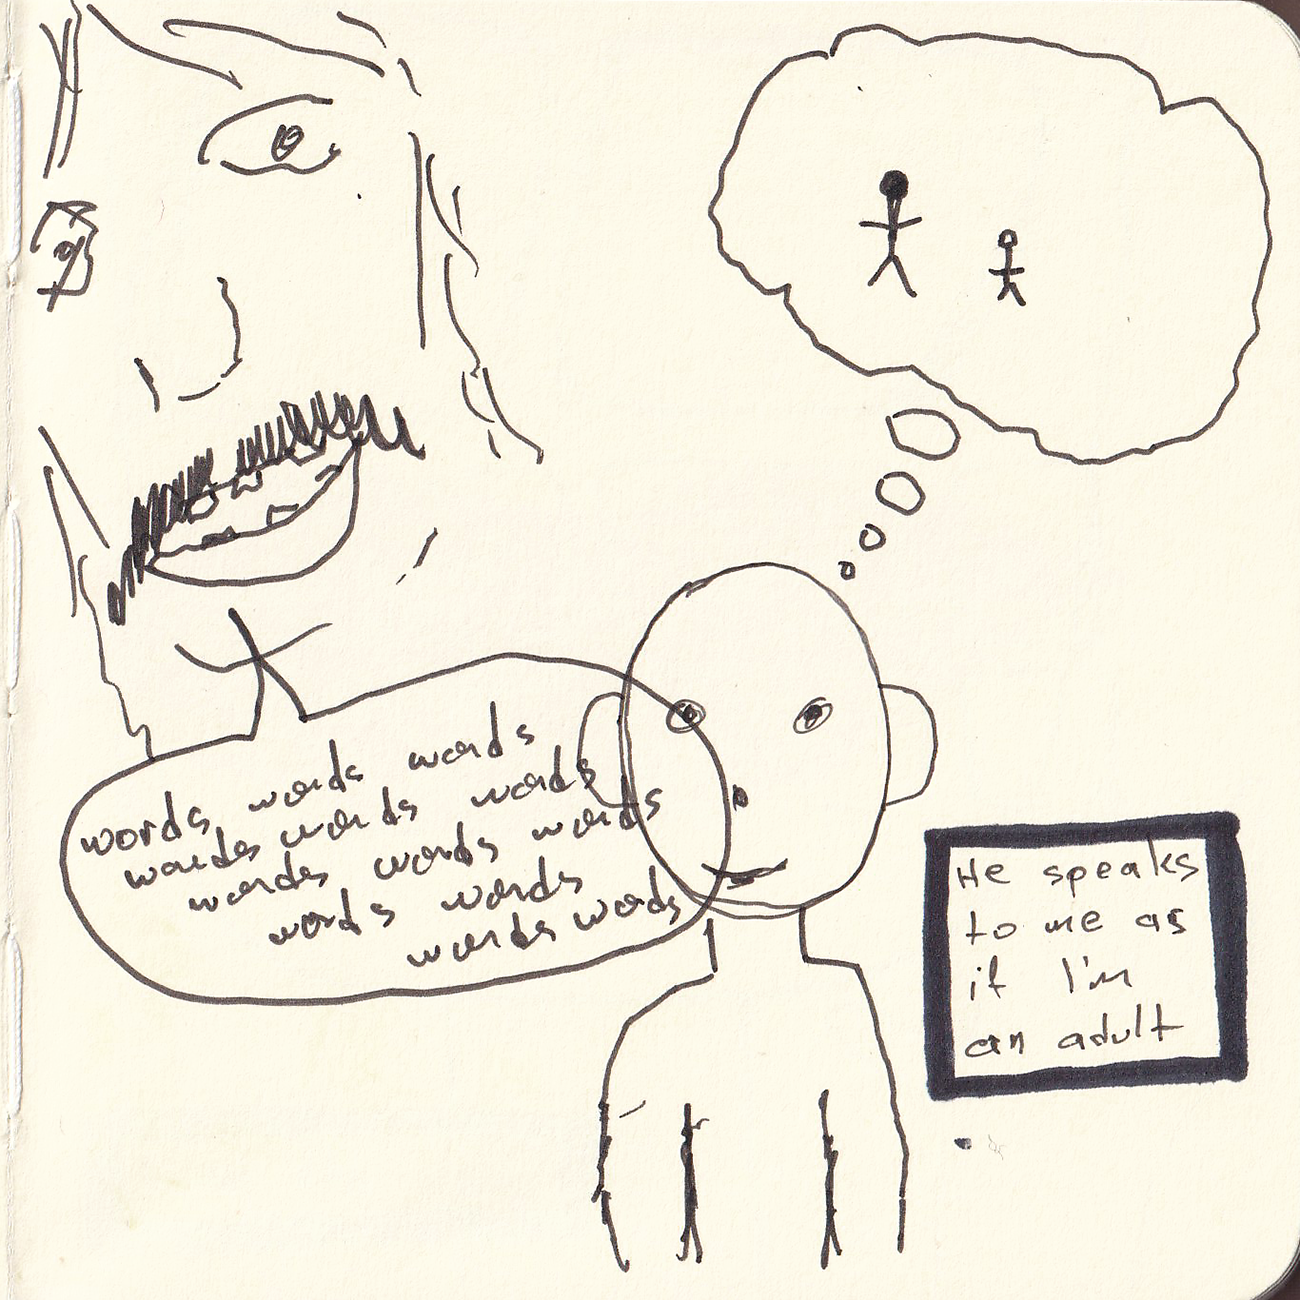 words words words
words words words
words words words
words words
words words
He speaks
to me as
if I'm
an adult